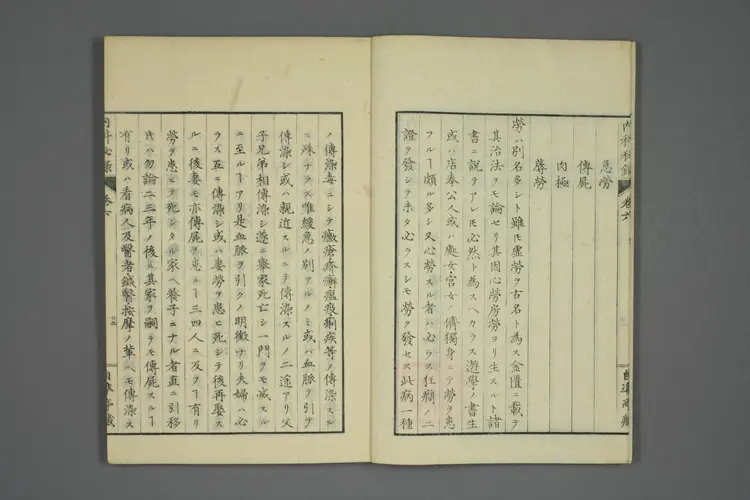 内科秘録 卷六
急勞
傳屍
肉極
蓐勞
勞ハ別名多シト雖モ虛勞ヲ古名ト為ス金匱ニ載テ
其治法ヲモ論セリ其因心勞房勞ヨリ生スルト諸
書ニ説テアレ𪜈必然ト為スヘカラス遊學ノ書生
或ハ店奉公人或ハ處女宮女ノ儕獨身ニテ勞ヲ患
フルヿ頗ル多シ又心勞スル者ハ必ラス狂癇ノ二
證ヲ發シテ未タ必ラスシモ勞ヲ發セス此病一種
ノ傳染毒ニシテ癥瘡疥癬瘟疫痢疾等ノ傳染スル
ニ殊ナラス唯緩急ノ別アルノミ或ハ血脈ヲ引テ
傳染シ或ハ親近スルニテ傳染スルノ二途アリ父
子兄弟相傳染シ遂ニ擧家死亡シ一門ヲモ滅スル
ニ至ルヿアリ是血脈ヲ引クノ明徴ナリ夫婦ハ必
ラス互ニ傳染シ或ハ妻勞ヲ患ヒ死シテ後再娶ス
ルニ後妻モ亦傳屍ヲ患ルヿ三四人ニ及フヿ有リ
勞ヲ患テ死シタル家ヘ養子ニナル者直ニ引移
ハ勿論二三年ノ後ニ其家ヲ嗣テモ傳屍スルヿ
有リ或ハ看病人及醫者鍼醫按摩ノ輩ヘモ傳染ス
内科秘録 卷六